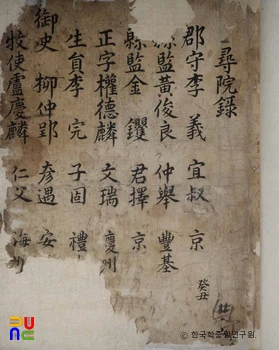 尋院錄
郡守李義 宜叔 京
縣監黃俊良 仲擧 豐基
縣監金鑺 君擇 京
正字權德麟 文瑞 慶州
生員李完 子固 禮
御史柳仲郢 彥遇 安
牧使盧慶麟 仁父 海州
癸丑
© 한국학중앙연구원